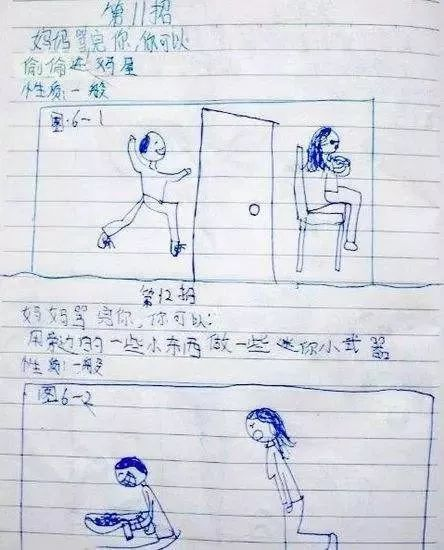 第11招
妈妈骂完你,你可以
偷偷进妈屋
性质:一般
图:6-1
第12招
妈妈骂完你,你可以:
用家边的一些小东西做一些迷你小武器
性质:一般
图6-2